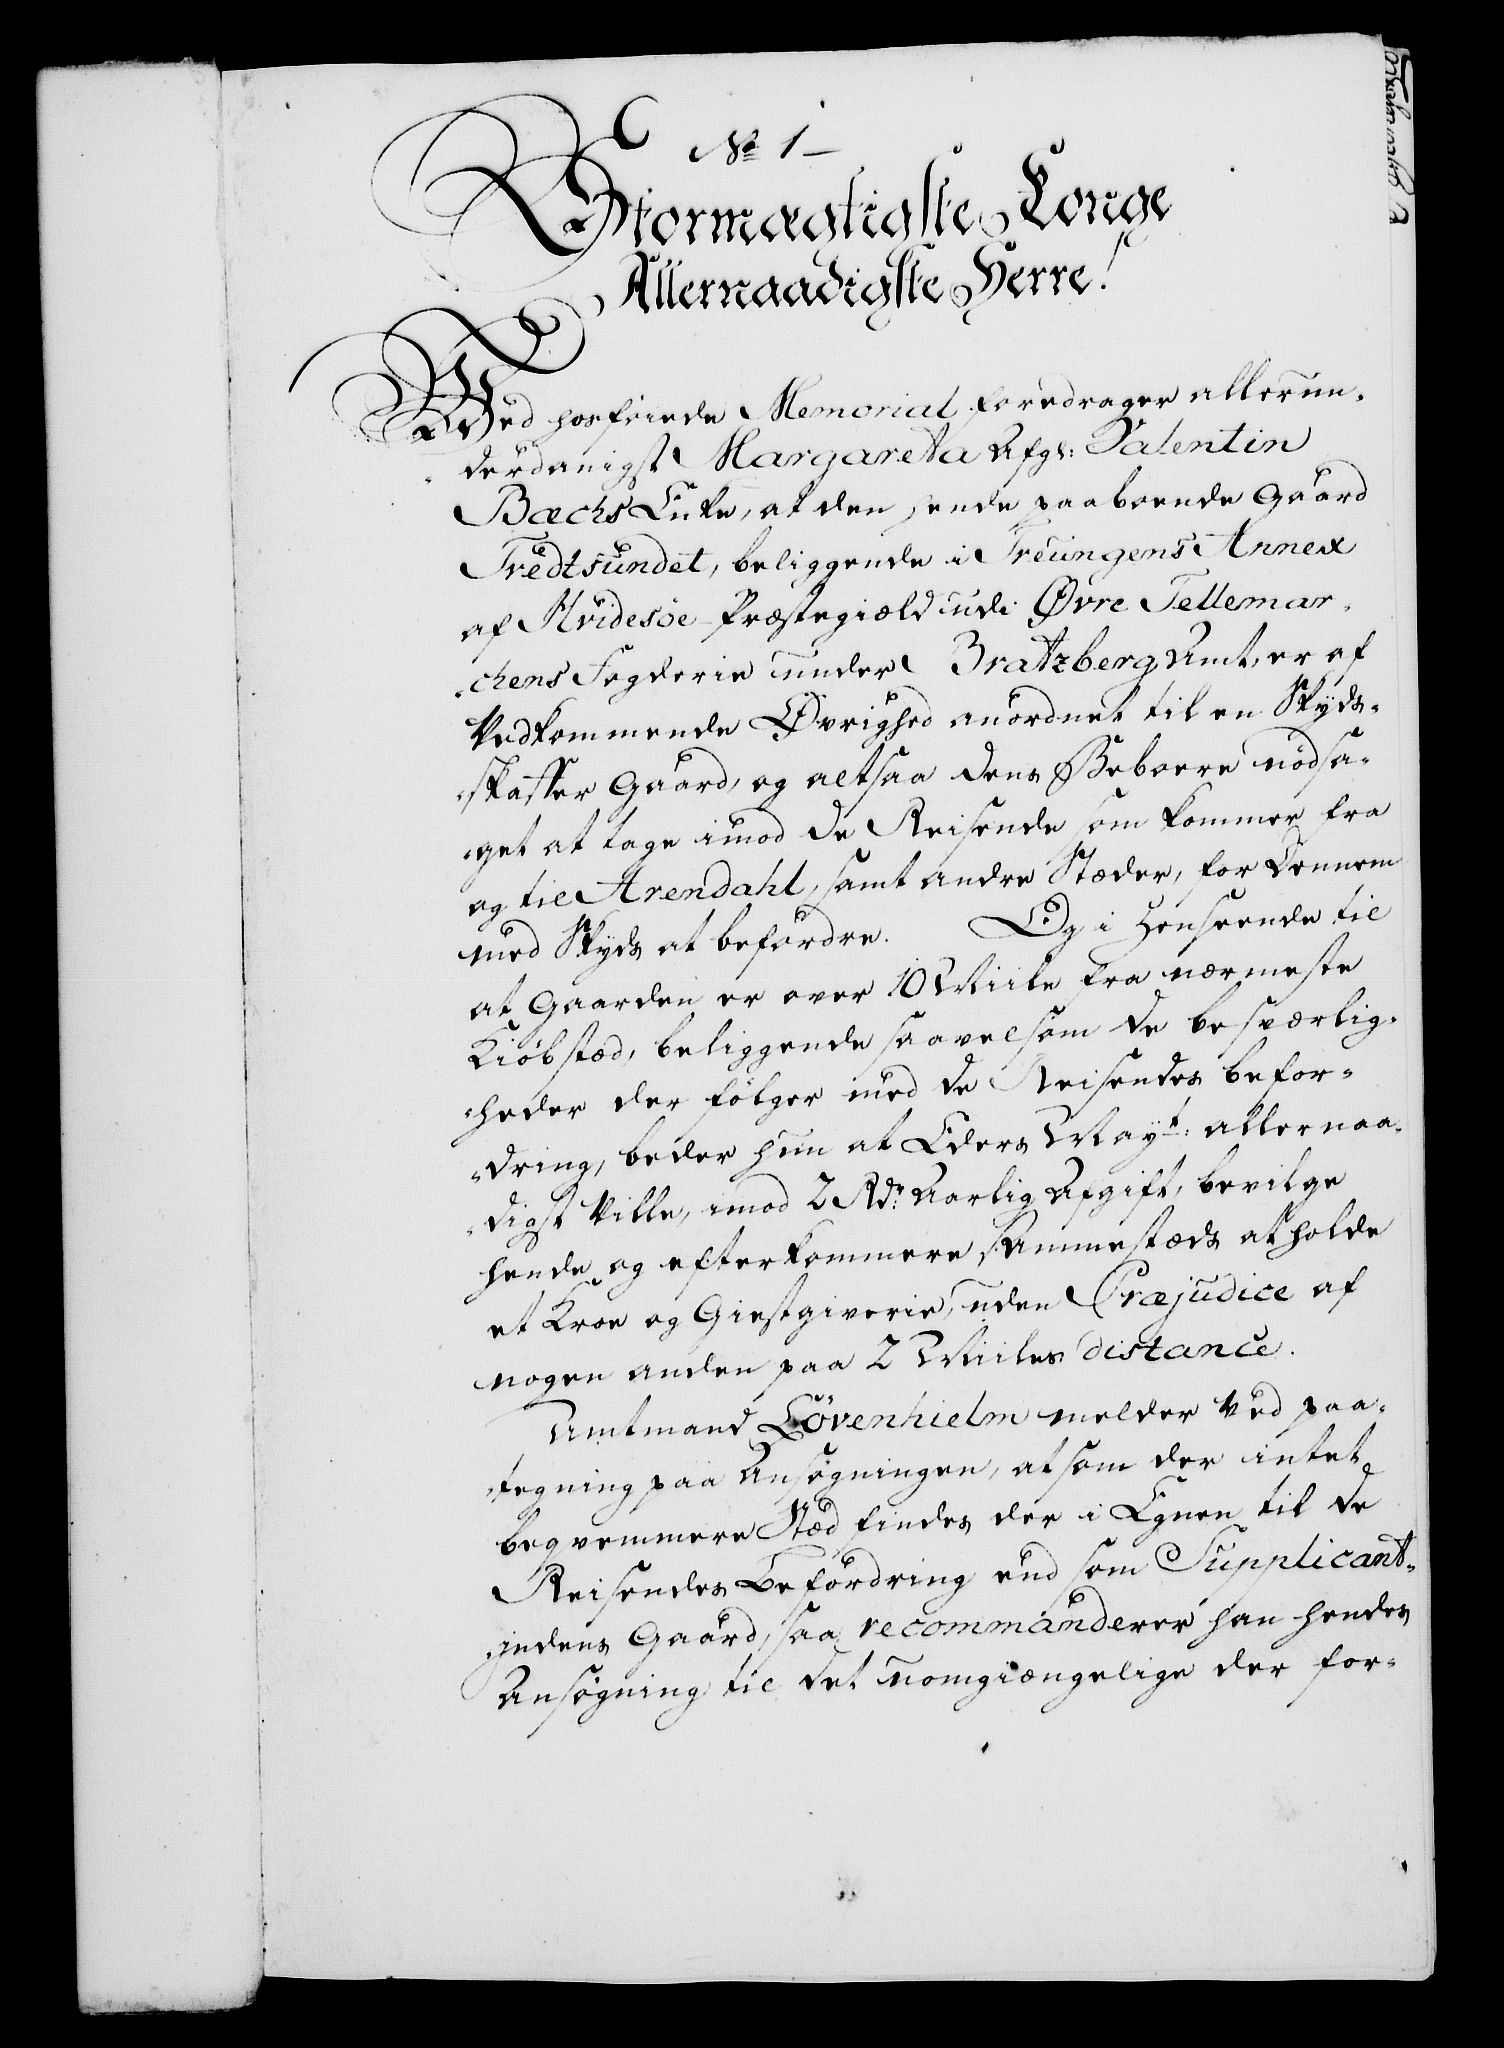 No 1
Stormægtigste Konge
Allernaadigste Herre!
Ved hosföiede Memorial foredrager allerun-
derdanigst Margareta Afg: Valentin
Bæchs Enke, at den hende paaboende Gaard
Tredtsundet, beliggende i Treungens Annex
af Hvidesöe Præstegiæld udi Øvre Tellemar-
chens Fogderie under Bratzberg Amt, er af
Vedkommende Øvrighed anordnet til en Skyds-
skaffer Gaard, og altsaa dens Beboere nödsa-
get at tage imod de Reisende som kommer fra
og til Arendahl, samt andre Stæder, for dennem
med Skyds at befordre. Og i Henseende til
at Gaarden er over 10 Miile fra nærmeste
Kiöbstæd, beliggende saavelsom de besværlig-
heder der fölger med de Reisendes befor-
dring, beder hun at Eders Mayt: allernaa-
digst Ville, imod 2 Rdr Aarlig Afgift, bevilge
hende og efterkommere sammestæds at holde
et Kroe og Giestgiverie, uden Præjudice af
nogen anden paa 2 Miiles distance.
Amtmand Lövenhielm melder ved paa-
tegning paa Ansögningen, at som der intet
beqvemmere Stæd findes der i Egnen til de
Reisendes Befordring end som Supplicant-
indens Gaard, saa recommanderer han hendes
Ansögning til det uomgiængelige der for-